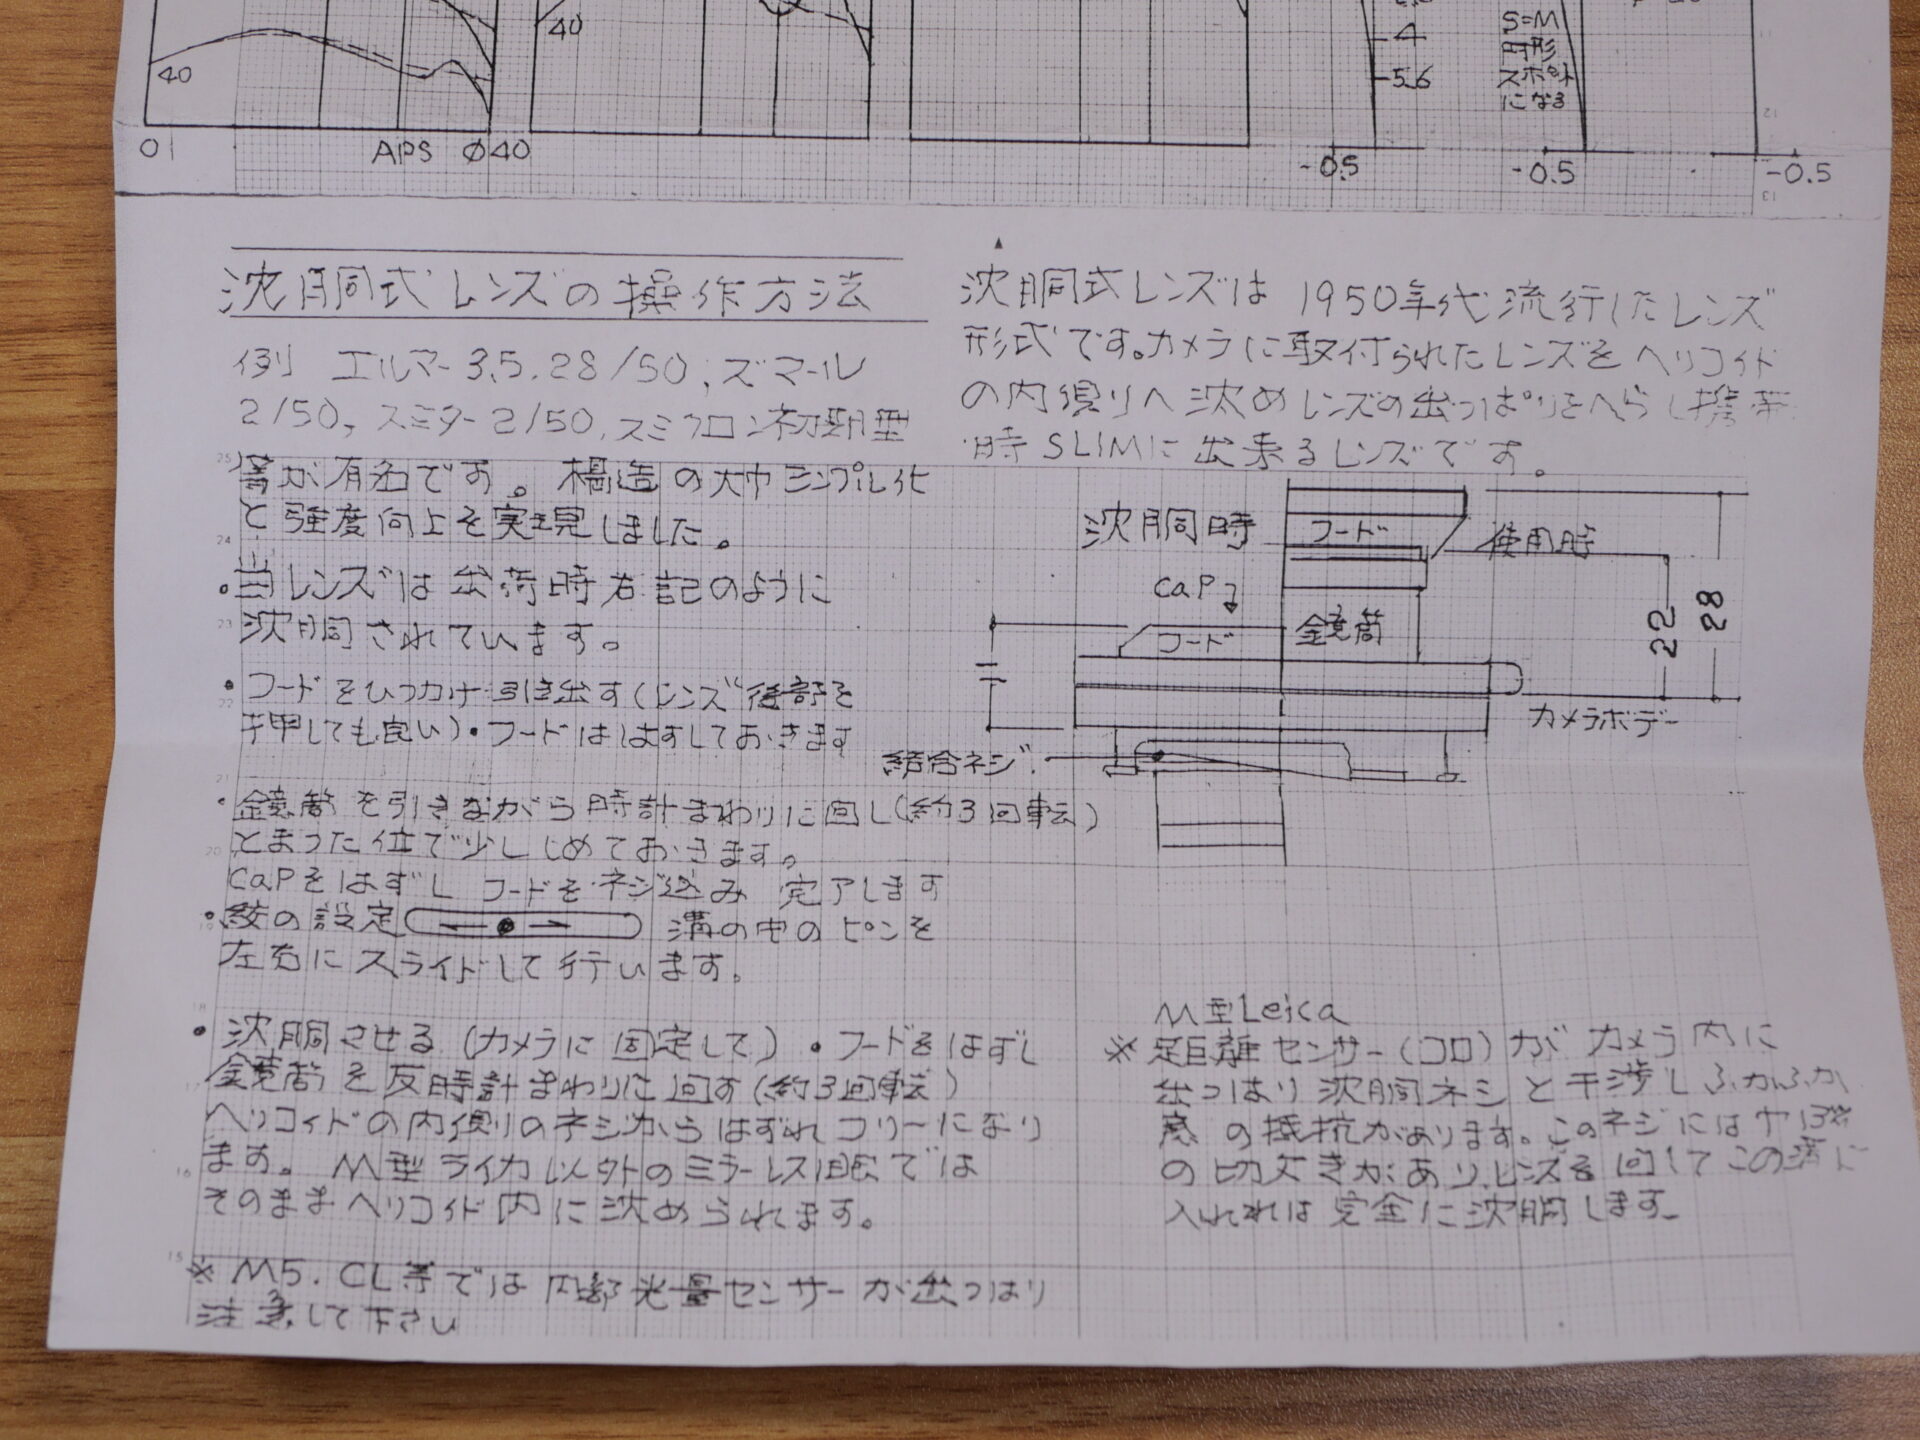 40
40
4
5.6
S=M
円形
スポット
になる
0
APS Ø40
-0.5
-0.5
-0.5
沈胴式レンズの操作方法
例 エルマー3.5.28/50, ズマール
2/50, スミター2/50, スミクロン初期型
等が有名です。構造の大巾シンプル化
と強度向上を実現しました。
•当レンズは出荷時右記のように
沈胴されています。
•フードをひっかけ引き出す(レンズ後部を
押しても良い)•フードははずしておきます
•鏡筒を引きながら時計まわりに回し(約3回転)
とまった位で少ししめておきます。
CaPをはずし フードをネジ込み 完了します
•絞の設定 溝の中のピンを
左右にスライドして行います。
•沈胴させる (カメラに固定して) •フードをはずし
鏡筒を反時計まわりに回す(約3回転)
ヘリコイドの内側のネジからはずれフリーになり
ます。M型ライカ以外のミラーレス眼では
そのままヘリコイド内に沈められます。
※ M5. CL等では内部光量センサーが出っぱり
注意して下さい
沈胴式レンズは 1950年代流行したレンズ
形式です。カメラに取付られたレンズをヘリコイド
の内側へ沈めレンズの出っぱりをへらし携帯
時SLIMに出来るレンズです。
沈胴時
フード
使用時
CaP
フード
鏡筒
22
28
カメラボデー
結合ネジ
M型Leica
※ 距離センサー(コロ)がカメラ内に
出っぱり沈胴ネジと干渉しふかふか
感の抵抗があります。このネジには巾13%
の切欠きがありレンズを回してこの溝に
入れれば完全に沈胴します